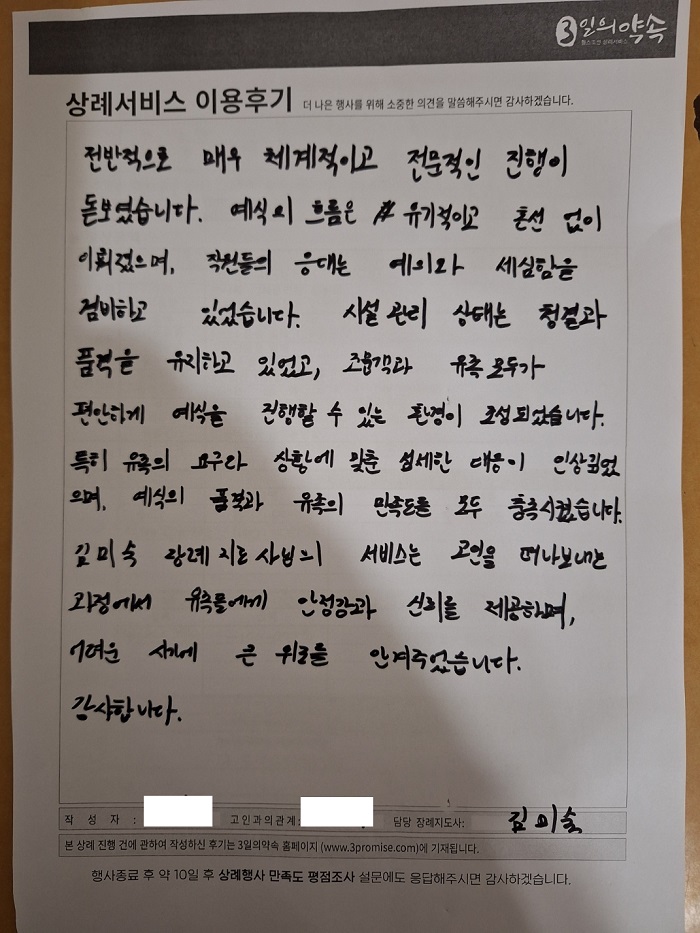 3일의약속
상례서비스 이용후기 더 나은 행사를 위해 소중한 의견을 말씀해주시면 감사하겠습니다.
전반적으로 매우 체계적이고 전문적인 진행이
돋보였습니다. 예식의 흐름은 유기적이고 혼선 없이
이뤄졌으며, 직원들의 응대는 예의와 세심함을
겸비하고 있었습니다. 시설 관리 상태는 청결과
품격을 유지하고 있었고, 조문객과 유족 모두가
편안하게 예식을 진행할 수 있는 환경이 조성되었습니다.
특히 유족의 요구와 상황에 맞춘 섬세한 대응이 인상깊었
으며, 예식의 품격과 유족의 만족도를 모두 충족시켰습니다.
김미숙 장례지도사님의 서비스는 고인을 떠나보내는
과정에서 유족들에게 안정감과 신뢰를 제공하며,
어려운 시기에 큰 위로를 안겨주었습니다.
감사합니다.
작 성 자 : 고인과의관계: 담당 장례지도사: 김미숙
본 상례 진행 건에 관하여 작성하신 후기는 3일의약속 홈페이지 (www.3promise.com)에 기재됩니다.
행사종료 후 약 10일 후 상례행사 만족도 평점조사 설문에도 응답해주시면 감사하겠습니다.